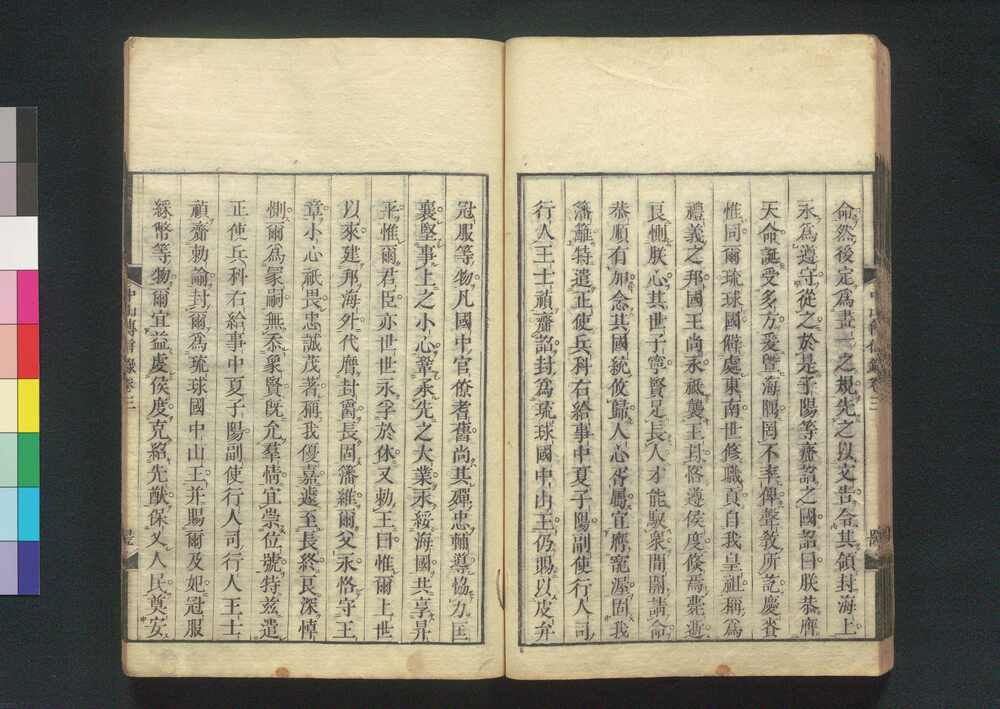 命然後定為畫一之規先之以文告令其領封海上
永為遵守從之於是子陽等齎詔之國詔曰朕恭膺
天命誕受多方爰暨海隅罔不率俾聲敎所訖慶賚
惟同爾琉球國僻處東南世修職貢自我皇祖稱為
禮義之邦國王尚永祗襲王封恪遵侯度倐焉薨逝
良惻朕心其世子寧賢足長人才能馭衆間關請命
恭順有加念其國統攸歸人心胥屬宜膺寵渥固我
藩籬特遣正使兵科右給事中夏子陽副使行人司
行人王士禎齎詔封為琉球國中山王仍賜以皮弁
冠服等物凡國中官僚耆舊尚其殫忠輔導恊力匡
襄堅事上之小心鞏承先之大業永綏海國共享昇
平惟爾君臣亦世世永孚於休又勅王曰惟爾上世
以來建邦海外代膺封爵長固藩維爾父永恪守王
章小心祗畏忠誠茂著稱我優嘉遽至長終良深悼
惻爾為冢嗣無忝象賢旣允羣情宜崇位號特兹遣
正使兵科右給事中夏子陽副使行人司行人王士
禎齎勅諭封爾為琉球國中山王幷賜爾及妃冠服
綵幣等物爾宜益虔侯度克紹先猷保乂人民奠安
中山傳信錄卷三